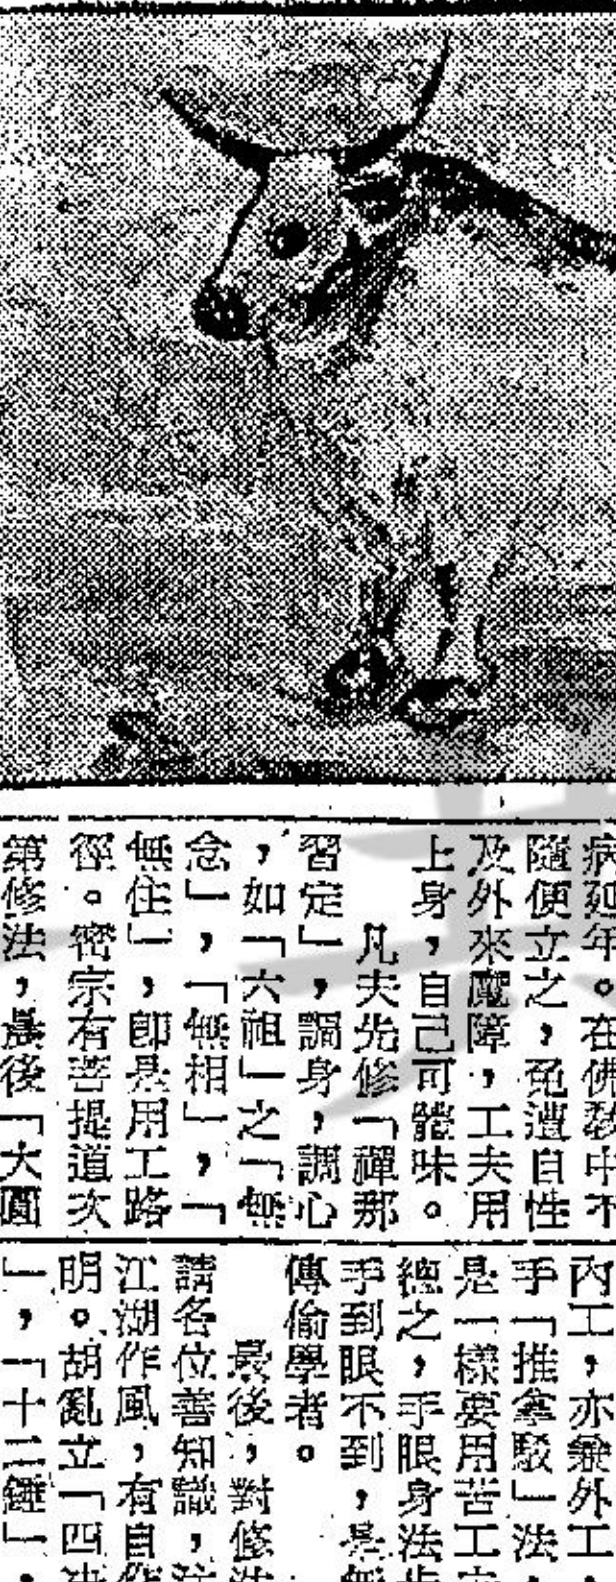 病延年。在佛教中不
隨便立之,免遭自性
及外來魔障,工夫用
上身,自己可體味。
凡夫先修「禪那
習定」,調身,調心
,如「六祖」之「無
念」,「無相」,「
無住」,即是用工路
徑。密宗有菩提道次
第修法,最後「大圓
內工,亦兼外工,
手「推拿駁」法,
是一樣要用苦工
總之,手眼身法步
手到眼不到,是無
傳偷學者。
最後,對修法
請各位善知識,注
江湖作風,有自作
明。胡亂立「四
」,「十二錘」,